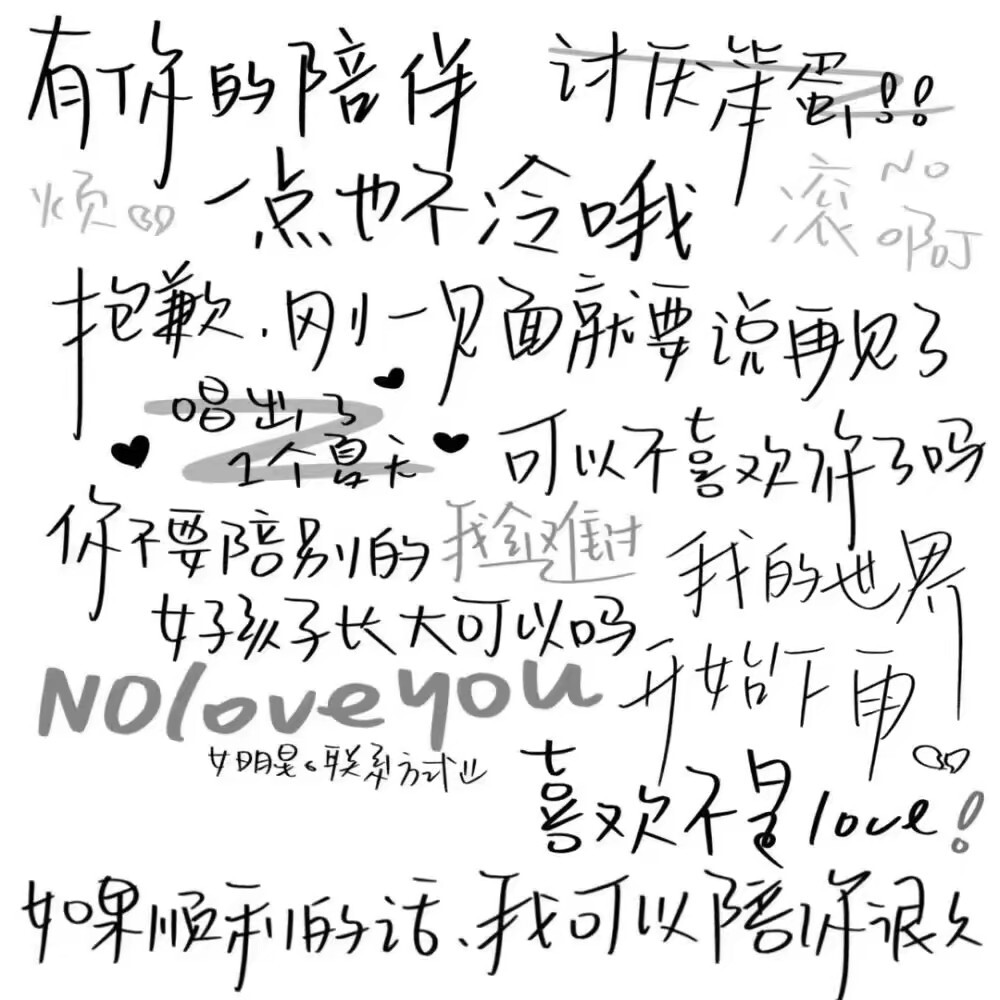 有你的陪伴
讨厌笨蛋!!
烦
一点也不冷哦
滚
NO
啊
抱歉.刚一见面就要说再见了
唱出了
1个夏天
可以不喜欢许了吗
你不要陪别的
女孩子长大可以吗
我会难过
我的世界
开始下雨
NO love you
女明星。联系方式
喜欢不是love!
如果顺利的话、我可以陪你很久